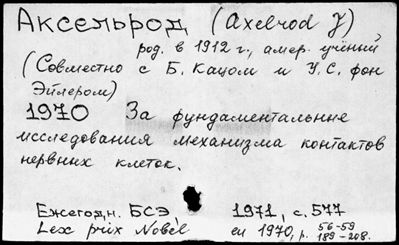 Аксельрод (Axelrod J)
род. в 1912 г., амер. учёный
(Совместно с Б. Кацом и У.С. фон
Эйлером)
1970 За фундаментальные
исследования механизма контактов
нервных клеток.
Ежегодн. БСЭ, 1971, с. 577
Lex prix Nobel en 1970, p. 56-59
189-208.